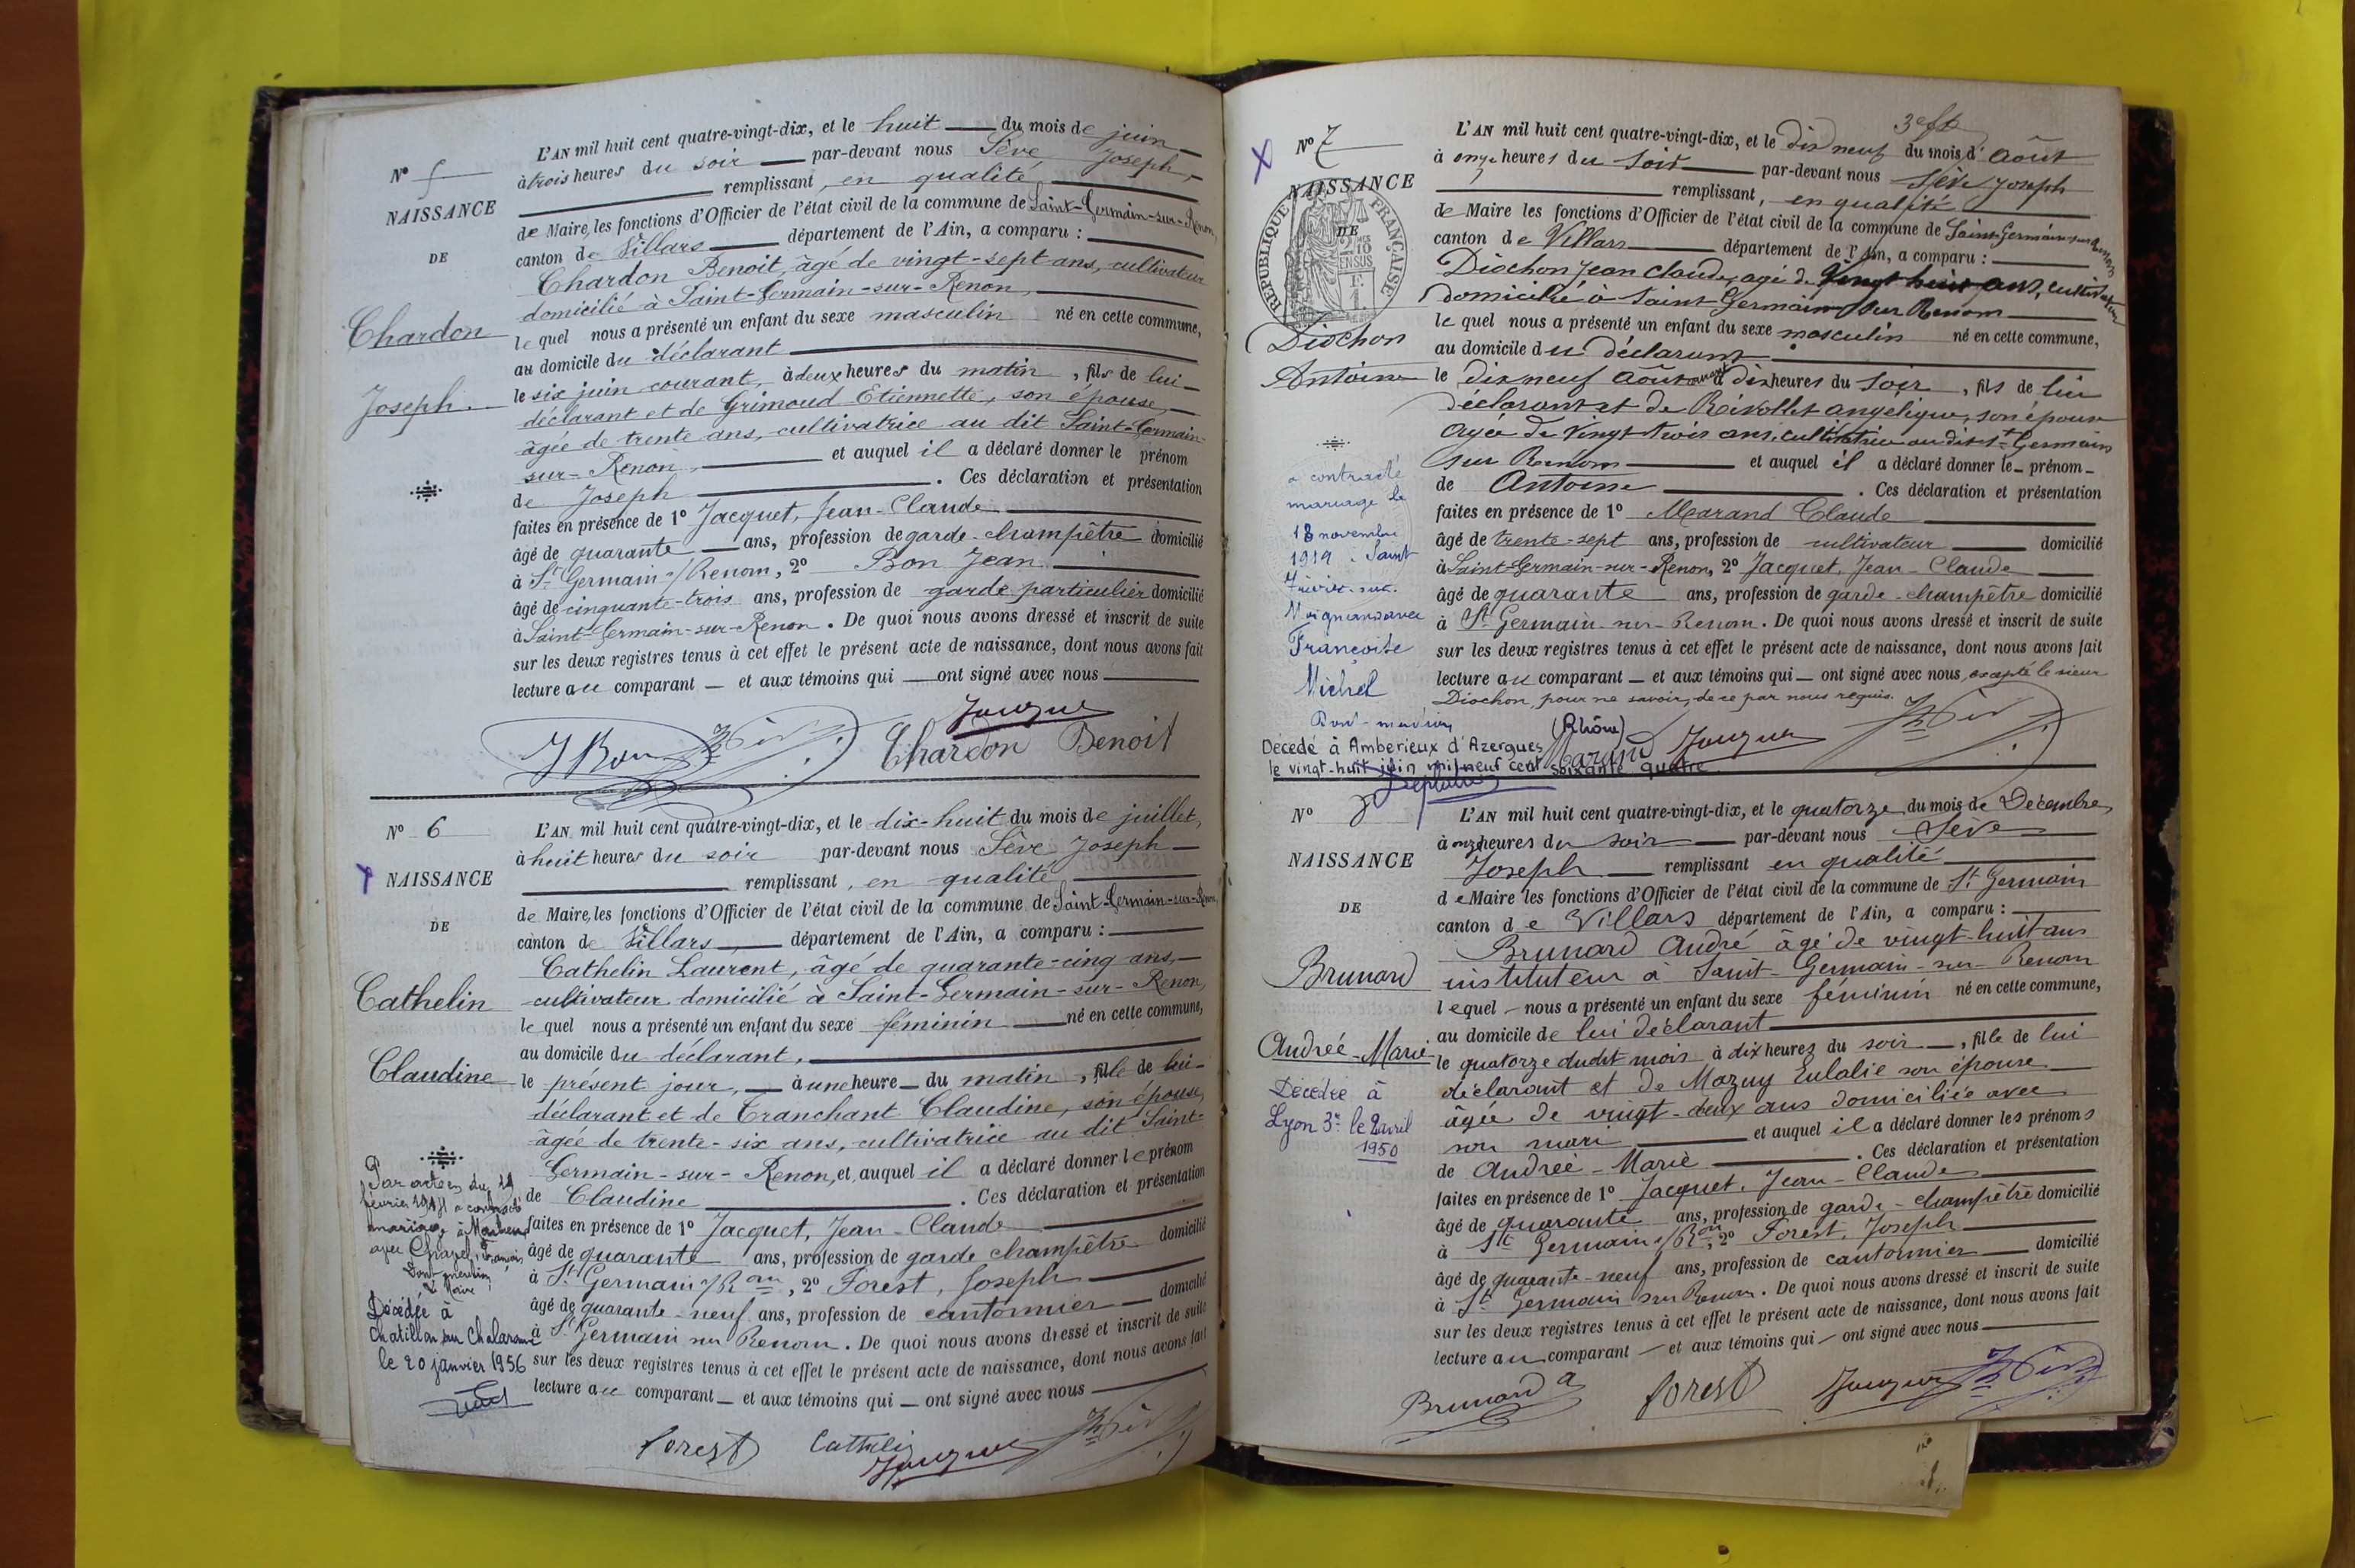 N° 5
NAISSANCE
DE
Chardon
Joseph.
L'AN mil huit cent quatre-vingt-dix, et le huit du mois de juin
à trois heures du soir par-devant nous Sève Joseph,
remplissant, en qualité
de Maire, les fonctions d'Officier de l'état civil de la commune de Saint-Germain-sur-Renon,
canton de Villars département de l'Ain, a comparu :
Chardon Benoit, âgé de vingt-sept ans, cultivateur
domicilié à Saint-Germain-sur-Renon,
lequel nous a présenté un enfant du sexe masculin né en cette commune,
au domicile du déclarant
le six juin courant, à deux heures du matin, fils de lui
déclarant et de Grimoud Etiennette, son épouse,
âgée de trente ans, cultivatrice au dit Saint-Germain-
sur-Renon, et auquel il a déclaré donner le prénom
de Joseph . Ces déclaration et présentation
faites en présence de 1° Jacquet, Jean-Claude
âgé de quarante ans, profession de garde-champêtre domicilié
à St Germain s/Renom, 2° Bon Jean
âgé de cinquante-trois ans, profession de garde particulier domicilié
à Saint-Germain-sur-Renon. De quoi nous avons dressé et inscrit de suite
sur les deux registres tenus à cet effet le présent acte de naissance, dont nous avons fait
lecture au comparant et aux témoins qui ont signé avec nous
Jacquet
J Bon Chardon Benoit
N° 6
NAISSANCE
DE
Cathelin
Claudine
L'AN mil huit cent quatre-vingt-dix, et le dix-huit du mois de juillet,
à huit heures du soir par-devant nous Sève Joseph
remplissant, en qualité,
de Maire, les fonctions d'Officier de l'état civil de la commune de Saint-Germain-sur-Renon,
canton de Villars, département de l'Ain, a comparu :
Cathelin Laurent, âgé de quarante-cinq ans,
cultivateur domicilié à Saint-Germain-sur-Renon,
lequel nous a présenté un enfant du sexe féminin né en cette commune,
au domicile du déclarant,
le présent jour, à une heure du matin, fille de lui
déclarant et de Tranchant Claudine, son épouse,
âgée de trente-six ans, cultivatrice au dit Saint-
Germain-sur-Renon, et auquel il a déclaré donner le prénom
de Claudine . Ces déclaration et présentation
faites en présence de 1° Jacquet, Jean-Claude
âgé de quarante ans, profession de garde champêtre domicilié
à St Germain s/Ron, 2° Forest, Joseph
âgé de quarante-neuf ans, profession de cantonnier domicilié
à St Germain sur Renom. De quoi nous avons dressé et inscrit de suite
sur les deux registres tenus à cet effet le présent acte de naissance, dont nous avons fait
lecture au comparant et aux témoins qui ont signé avec nous
Par acte du 14
février a contracté
mariage à
avec Chapel, François
Dont mention
Le Maire
Décédée à
Chatillon sur Chalaronne
le 20 janvier 1956
Forest Cathelin
Jacquet
3e fte
N° 7
NAISSANCE
DE
RÉPUBLIQUE FRANÇAISE
Diochon
Antoine
L'AN mil huit cent quatre-vingt-dix, et le dix neuf du mois d'Août
à onze heures du soir par-devant nous Sève Joseph
remplissant, en qualité
de Maire les fonctions d'Officier de l'état civil de la commune de Saint-Germain sur Renon
canton de Villars département de l'Ain, a comparu :
Diochon Jean Claude, agé de Vingt huit ans, cultivateur
domicilié à Saint Germain sur Renom
lequel nous a présenté un enfant du sexe masculin né en cette commune,
au domicile du déclarant
le dix neuf Août courant à dix heures du soir, fils de lui
déclarant et de Révollet angélique, son épouse
agée de Vingt trois ans, cultivatrice au dit St Germain
sur Renom et auquel il a déclaré donner le prénom
de Antoine . Ces déclaration et présentation
faites en présence de 1° Marand Claude
âgé de trente-sept ans, profession de cultivateur domicilié
à Saint-Germain-sur-Renon, 2° Jacquet, Jean-Claude
âgé de quarante ans, profession de garde-champêtre domicilié
à St Germain-sur-Renom. De quoi nous avons dressé et inscrit de suite
sur les deux registres tenus à cet effet le présent acte de naissance, dont nous avons fait
lecture au comparant et aux témoins qui ont signé avec nous, excepté le sieur
Diochon, pour ne savoir, de ce par nous requis.
a contracté
mariage le
18 novembre
1919 Saint
Trivier-sur-
Moignans avec
Françoise
Michel
Dont mention
(Rhône)
Décédé à Amberieux d'Azergues
le vingt-huit juin mil neuf cent soixante quatre
Marand Jacquet
N° 8
NAISSANCE
DE
Brunard
Andreé-Marie
L'AN mil huit cent quatre-vingt-dix, et le quatorze du mois de Décembre,
à onze heures du soir par-devant nous Sève
Joseph remplissant en qualité
de Maire les fonctions d'Officier de l'état civil de la commune de St Germain
canton de Villars département de l'Ain, a comparu :
Brunard André âgé de vingt-huit ans
instituteur à Saint-Germain-sur-Renom
lequel nous a présenté un enfant du sexe féminin né en cette commune,
au domicile de lui déclarant
le quatorze dudit mois à dix heures du soir, fille de lui
déclarant et de Mazuy Eulalie son épouse
âgée de vingt-deux ans domiciliée avec
son mari et auquel il a déclaré donner les prénoms
de Andreé-Marie . Ces déclaration et présentation
faites en présence de 1° Jacquet, Jean-Claude
âgé de quarante ans, profession de garde-champêtre domicilié
à St Germain s/Ron, 2° Forest, Joseph
âgé de quarante-neuf ans, profession de cantonnier domicilié
à St Germain sur Renom. De quoi nous avons dressé et inscrit de suite
sur les deux registres tenus à cet effet le présent acte de naissance, dont nous avons fait
lecture au comparant et aux témoins qui ont signé avec nous
Décédée à
Lyon 3e le 2 avril
1950
Brunard a Forest Jacquet